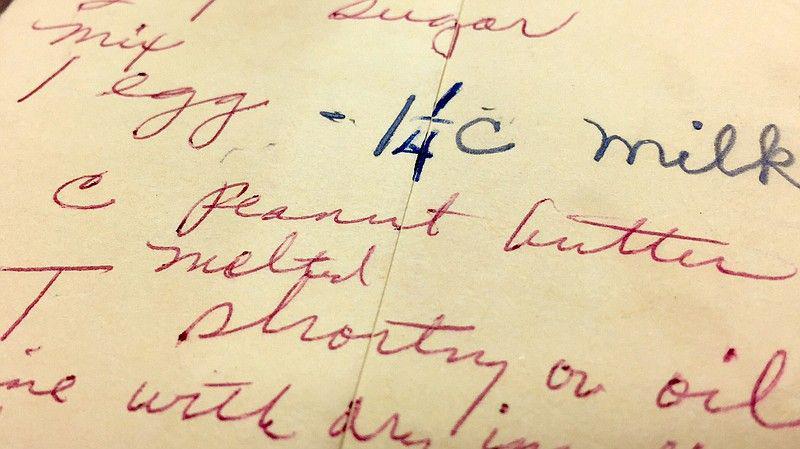 sugar
mix
1 egg - 1 1/4 C milk
C peanut butter
melted
T shortng or oil
with dry